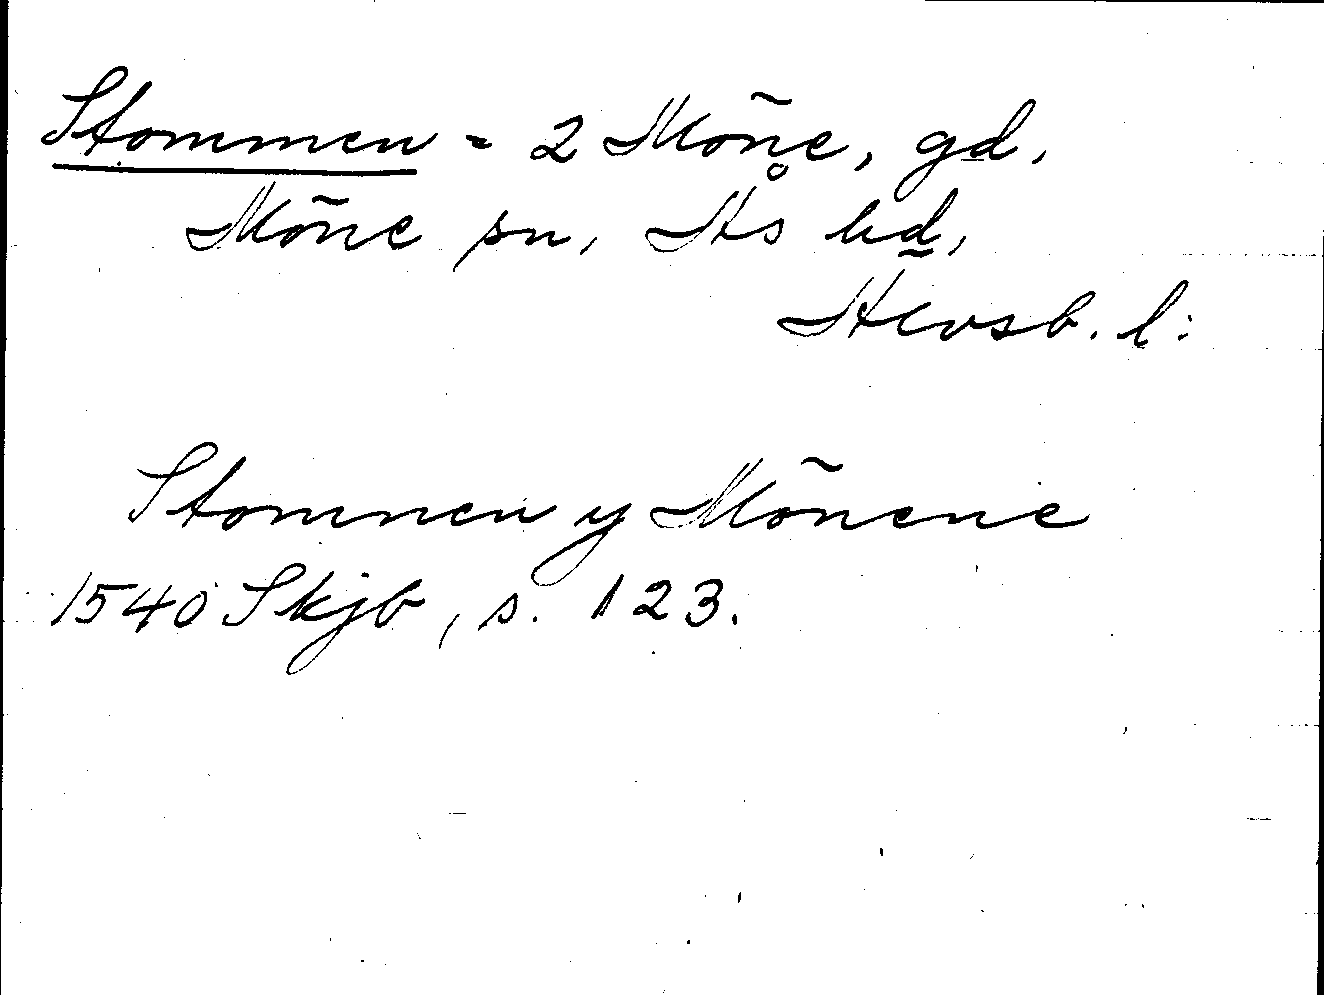 Stommen = 2 Möne, gd,
Möne sn, Ås hd,
Älvsb. l:
Stommen y Mönene
1540 Skjb, s. 123.